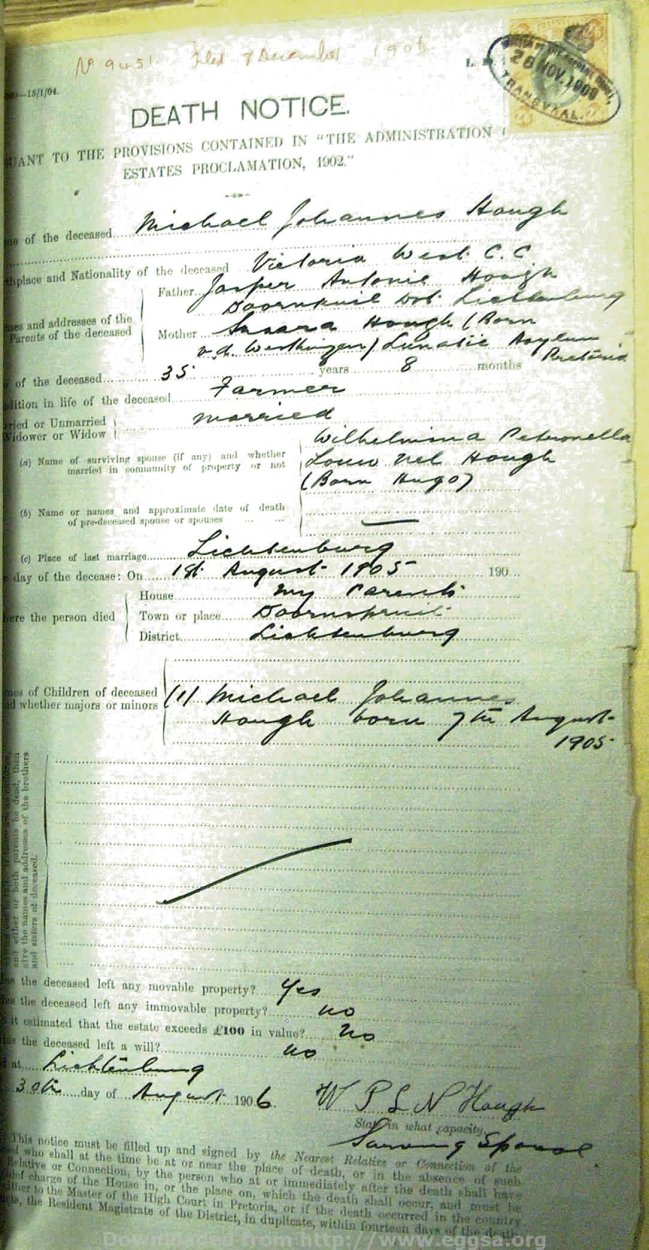 No 9451 Filed 7 December 1906
15/1/04.
26 NOV. 1906
TRANSVAAL.
DEATH NOTICE.
PROVISIONS CONTAINED IN "THE ADMINISTRATION
ESTATES PROCLAMATION, 1902."
of the deceased Michael Johannes Hough
and Nationality of the deceased Victoria West C.C
Father Jasper Antonie Hough
Dist. Lichtenburg
and addresses of the
Parents of the deceased
Mother Susara Hough (Born
v.d. Westhuizen) Lunatic Asylum
Pretoria
of the deceased 35 years 8 months
in life of the deceased Farmer
or Unmarried married
Widower or Widow
(a) Name of surviving spouse (if any) and whether
married in community of property or not
Wilhelmina Petronella
Louw Nel Hough
(Born Hugo)
(b) Name or names and approximate date of death
of pre-deceased spouse or spouses
(c) Place of last marriage Lichtenburg
day of the decease: On 1st August 1905 190
the person died
House my Parents
Town or place Doornspruit
District Lichtenburg
of Children of deceased
whether majors or minors
(1) Michael Johannes
Hough born 7th August
1905
and either or both parents be dead, then
give the names and addresses of the brothers
and sisters of deceased.
the deceased left any movable property? Yes
the deceased left any immovable property? no
it estimated that the estate exceeds £100 in value? no
the deceased left a will? no
at Lichtenburg
30th day of August 1906 W P L N Hough
State in what capacity
Surviving Spouse
This notice must be filled up and signed by the Nearest Relative or Connection of the
who shall at the time be at or near the place of death, or in the absence of such
Relative or Connection, by the person who at or immediately after the death shall have
charge of the House in, or the place on, which the death shall occur, and must be
to the Master of the High Court in Pretoria, or if the death occurred in the country
the Resident Magistrate of the District, in duplicate, within fourteen days of the death
Downloaded from http://www.eggsa.org